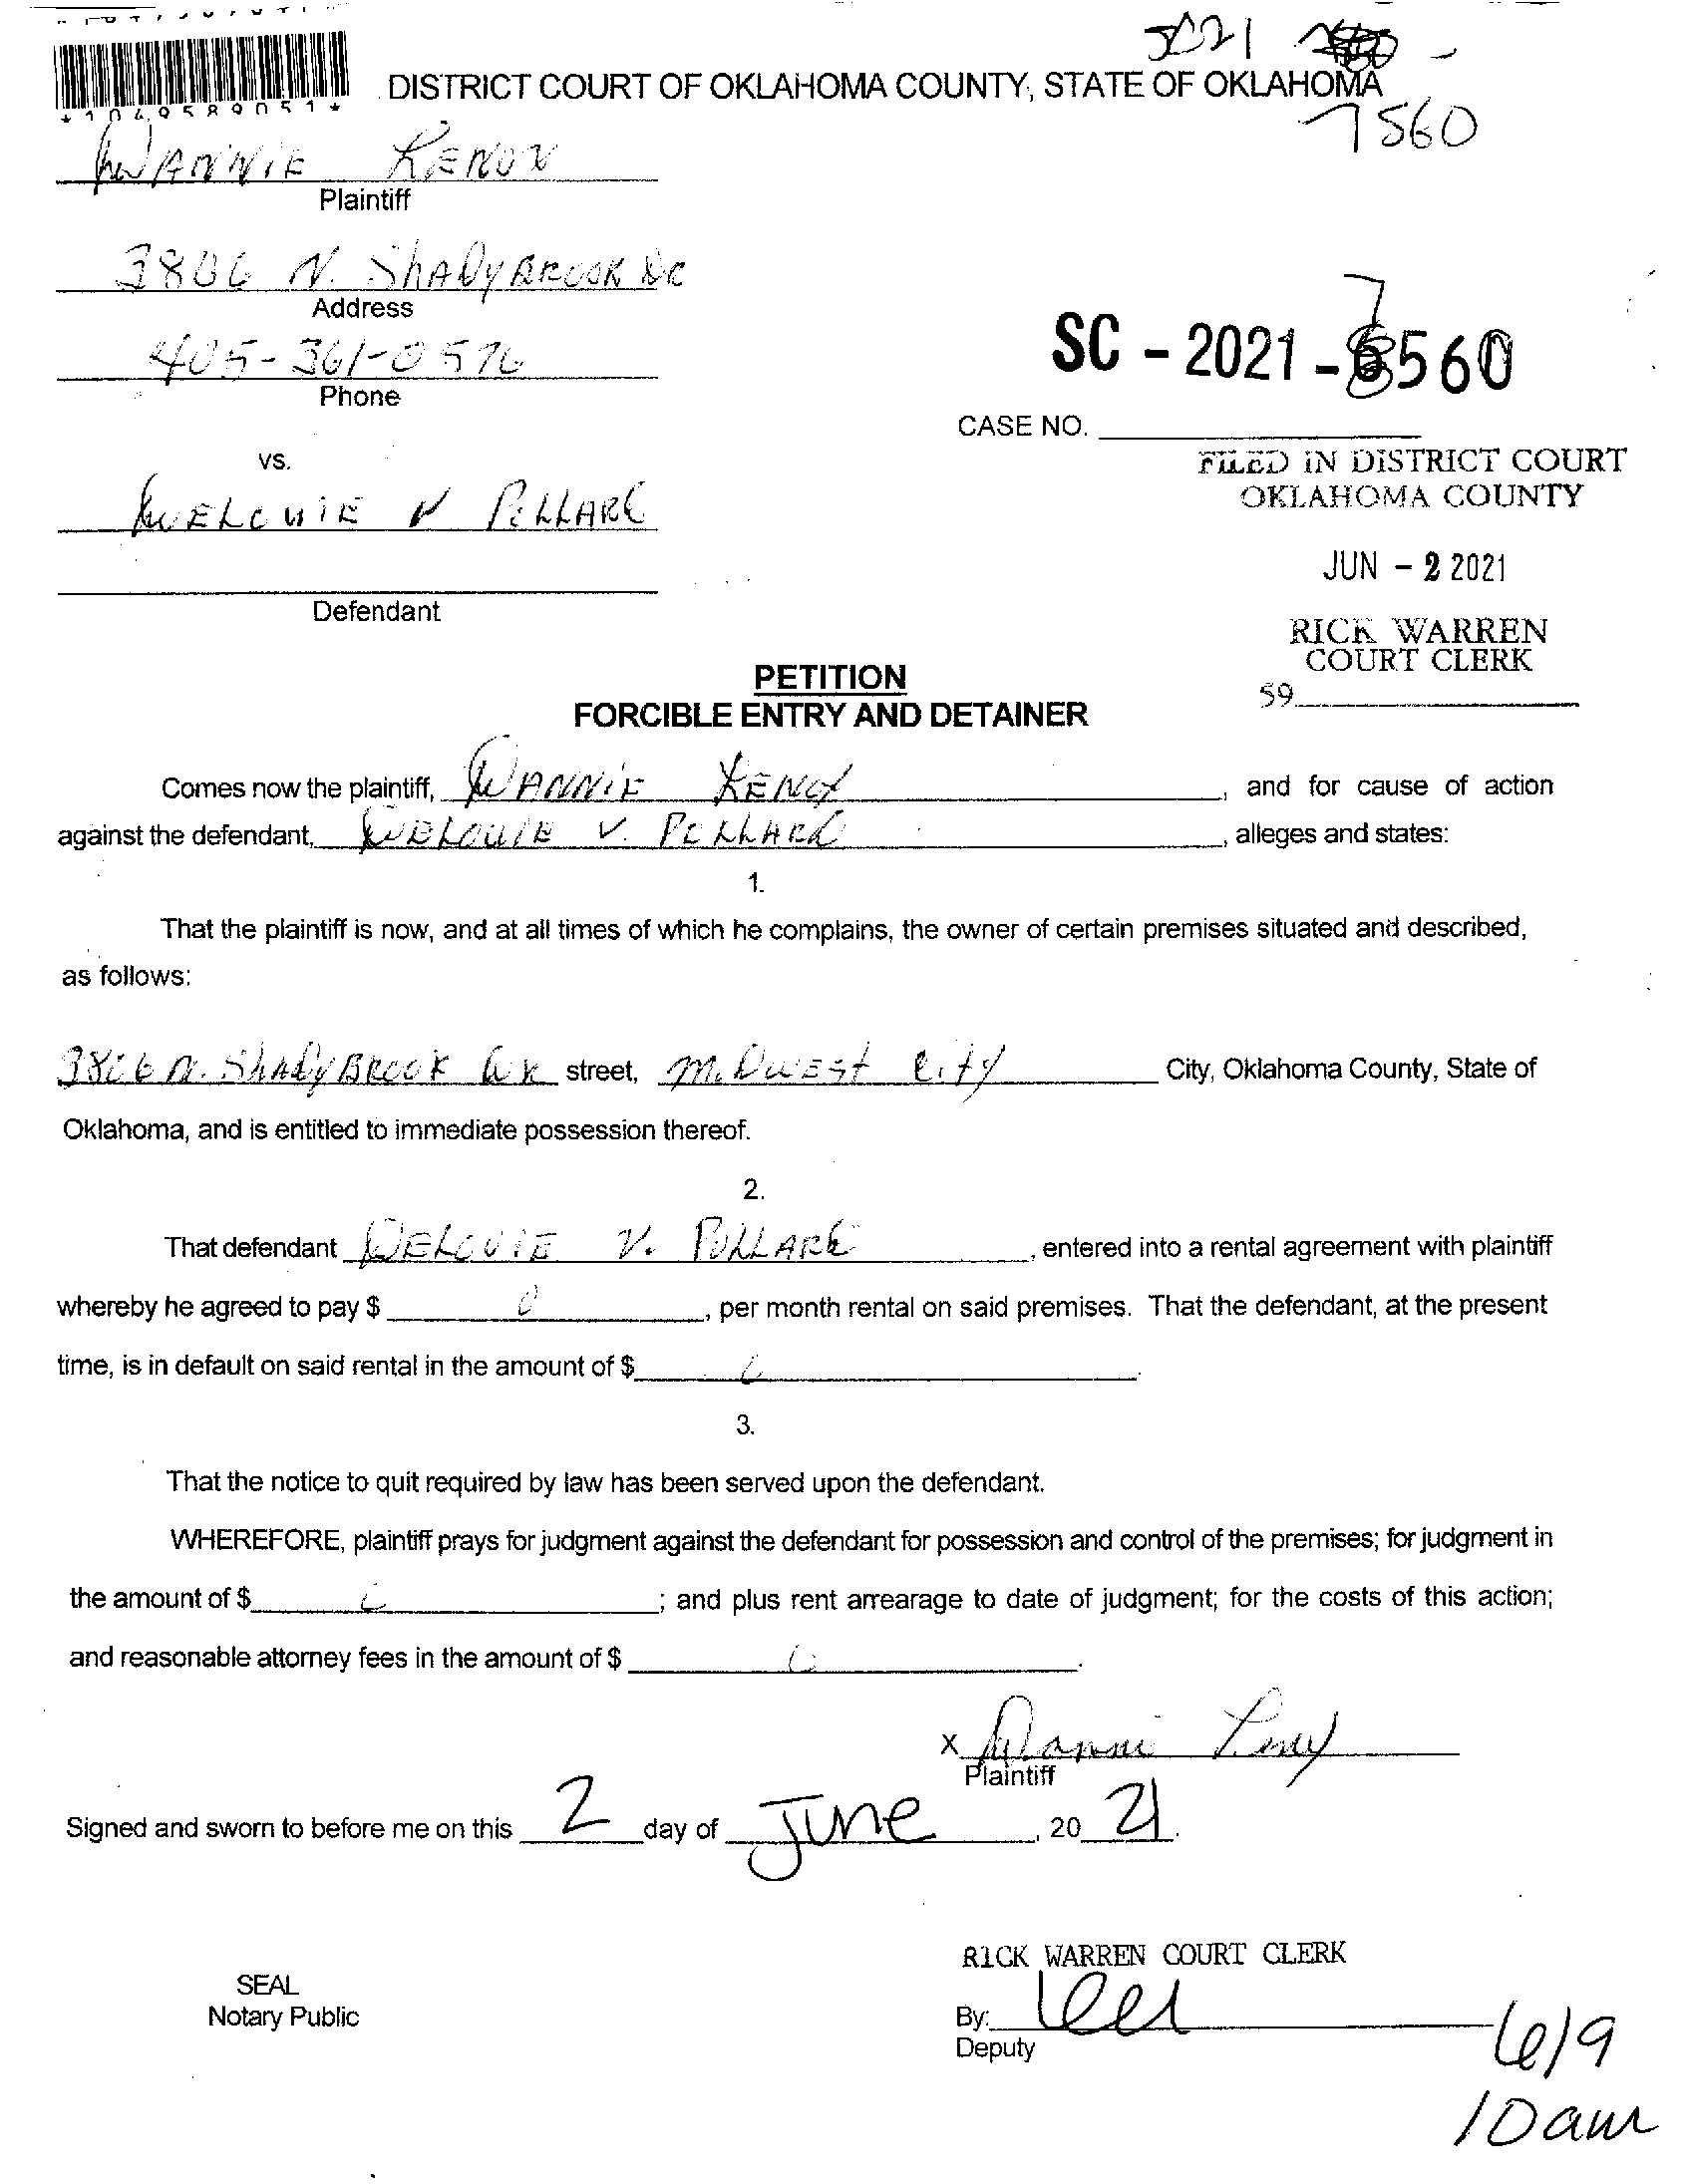 *1049589051*
2021
DISTRICT COURT OF OKLAHOMA COUNTY, STATE OF OKLAHOMA
7560
Plaintiff
3806 N. ShADyBROOK DR
Address
405-361-0576
Phone
SC - 2021 - 7560
CASE NO.
vs.
FILED IN DISTRICT COURT
OKLAHOMA COUNTY
JUN - 2 2021
Defendant
RICK WARREN
COURT CLERK
59
PETITION
FORCIBLE ENTRY AND DETAINER
Comes now the plaintiff, , and for cause of action
against the defendant, V. , alleges and states:
1.
That the plaintiff is now, and at all times of which he complains, the owner of certain premises situated and described,
as follows:
3806 N. ShADyBROOK street, MiDWEST City City, Oklahoma County, State of
Oklahoma, and is entitled to immediate possession thereof.
2.
That defendant DELOUIE V. POLLARD, entered into a rental agreement with plaintiff
whereby he agreed to pay $ 0, per month rental on said premises. That the defendant, at the present
time, is in default on said rental in the amount of $ 0.
3.
That the notice to quit required by law has been served upon the defendant.
WHEREFORE, plaintiff prays for judgment against the defendant for possession and control of the premises; for judgment in
the amount of $ 0; and plus rent arrearage to date of judgment; for the costs of this action;
and reasonable attorney fees in the amount of $ 0.
X
Plaintiff
Signed and sworn to before me on this 2 day of June, 20 21.
RICK WARREN COURT CLERK
SEAL
Notary Public
By:
Deputy
6/9
10am